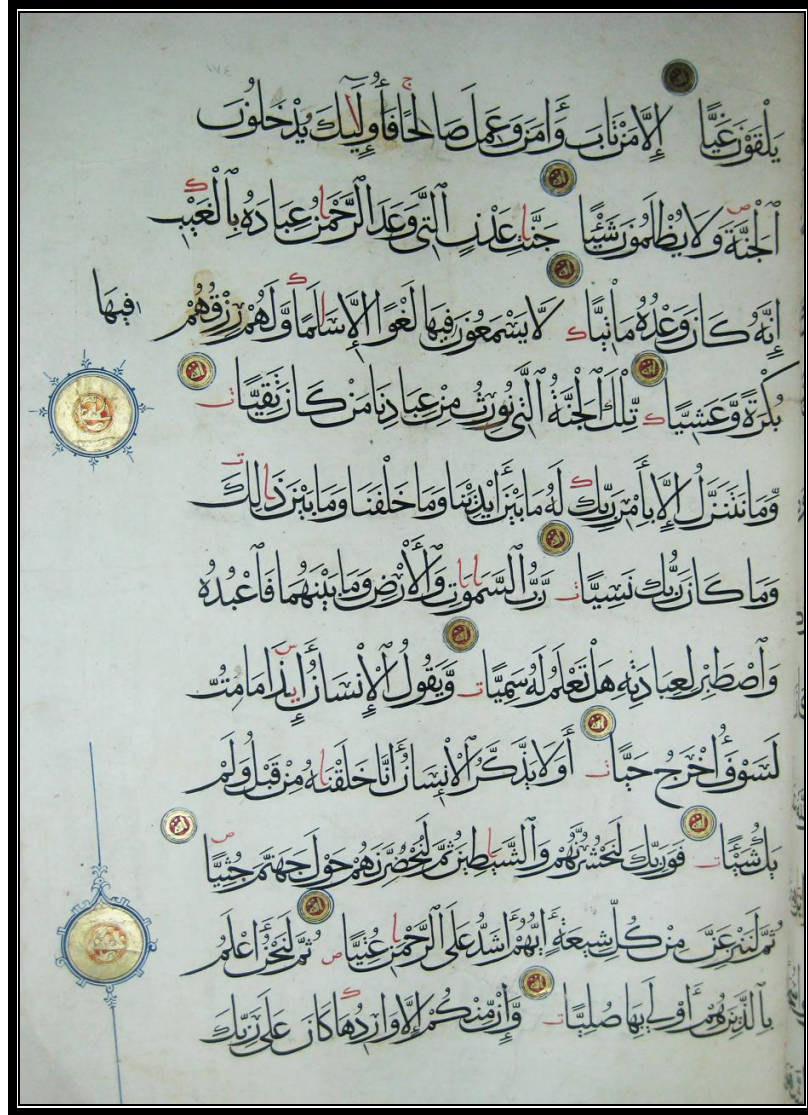 يَلْقَوْنَ غَيًّا إِلَّا مَنْ تَابَ وَآمَنَ وَعَمِلَ صَالِحًا فَأُولَٰئِكَ يَدْخُلُونَ
ٱلْجَنَّةَ وَلَا يُظْلَمُونَ شَيْئًا جَنَّاتِ عَدْنٍ ٱلَّتِي وَعَدَ ٱلرَّحْمَٰنُ عِبَادَهُ بِٱلْغَيْبِ
إِنَّهُ كَانَ وَعْدُهُ مَأْتِيًّا لَا يَسْمَعُونَ فِيهَا لَغْوًا إِلَّا سَلَامًا وَلَهُمْ رِزْقُهُمْ فِيهَا
بُكْرَةً وَعَشِيًّا تِلْكَ ٱلْجَنَّةُ ٱلَّتِي نُورِثُ مِنْ عِبَادِنَا مَنْ كَانَ تَقِيًّا
وَمَا نَتَنَزَّلُ إِلَّا بِأَمْرِ رَبِّكَ لَهُ مَا بَيْنَ أَيْدِينَا وَمَا خَلْفَنَا وَمَا بَيْنَ ذَٰلِكَ
وَمَا كَانَ رَبُّكَ نَسِيًّا رَبُّ ٱلسَّمَٰوَٰتِ وَٱلْأَرْضِ وَمَا بَيْنَهُمَا فَٱعْبُدْهُ
وَٱصْطَبِرْ لِعِبَادَتِهِ هَلْ تَعْلَمُ لَهُ سَمِيًّا وَيَقُولُ ٱلْإِنْسَانُ أَئِذَا مَا مِتُّ
لَسَوْفَ أُخْرَجُ حَيًّا أَوَلَا يَذْكُرُ ٱلْإِنْسَانُ أَنَّا خَلَقْنَٰهُ مِنْ قَبْلُ وَلَمْ
يَكُ شَيْئًا فَوَرَبِّكَ لَنَحْشُرَنَّهُمْ وَٱلشَّيَٰطِينَ ثُمَّ لَنُحْضِرَنَّهُمْ حَوْلَ جَهَنَّمَ جُثِيًّا
ثُمَّ لَنَنْزِعَنَّ مِنْ كُلِّ شِيعَةٍ أَيُّهُمْ أَشَدُّ عَلَى ٱلرَّحْمَٰنِ عُتِيًّا ثُمَّ لَنَحْنُ أَعْلَمُ
بِٱلَّذِينَ هُمْ أَوْلَىٰ بِهَا صُلِيًّا وَإِنْ مِنْكُمْ إِلَّا وَارِدُهَا كَانَ عَلَىٰ رَبِّكَ